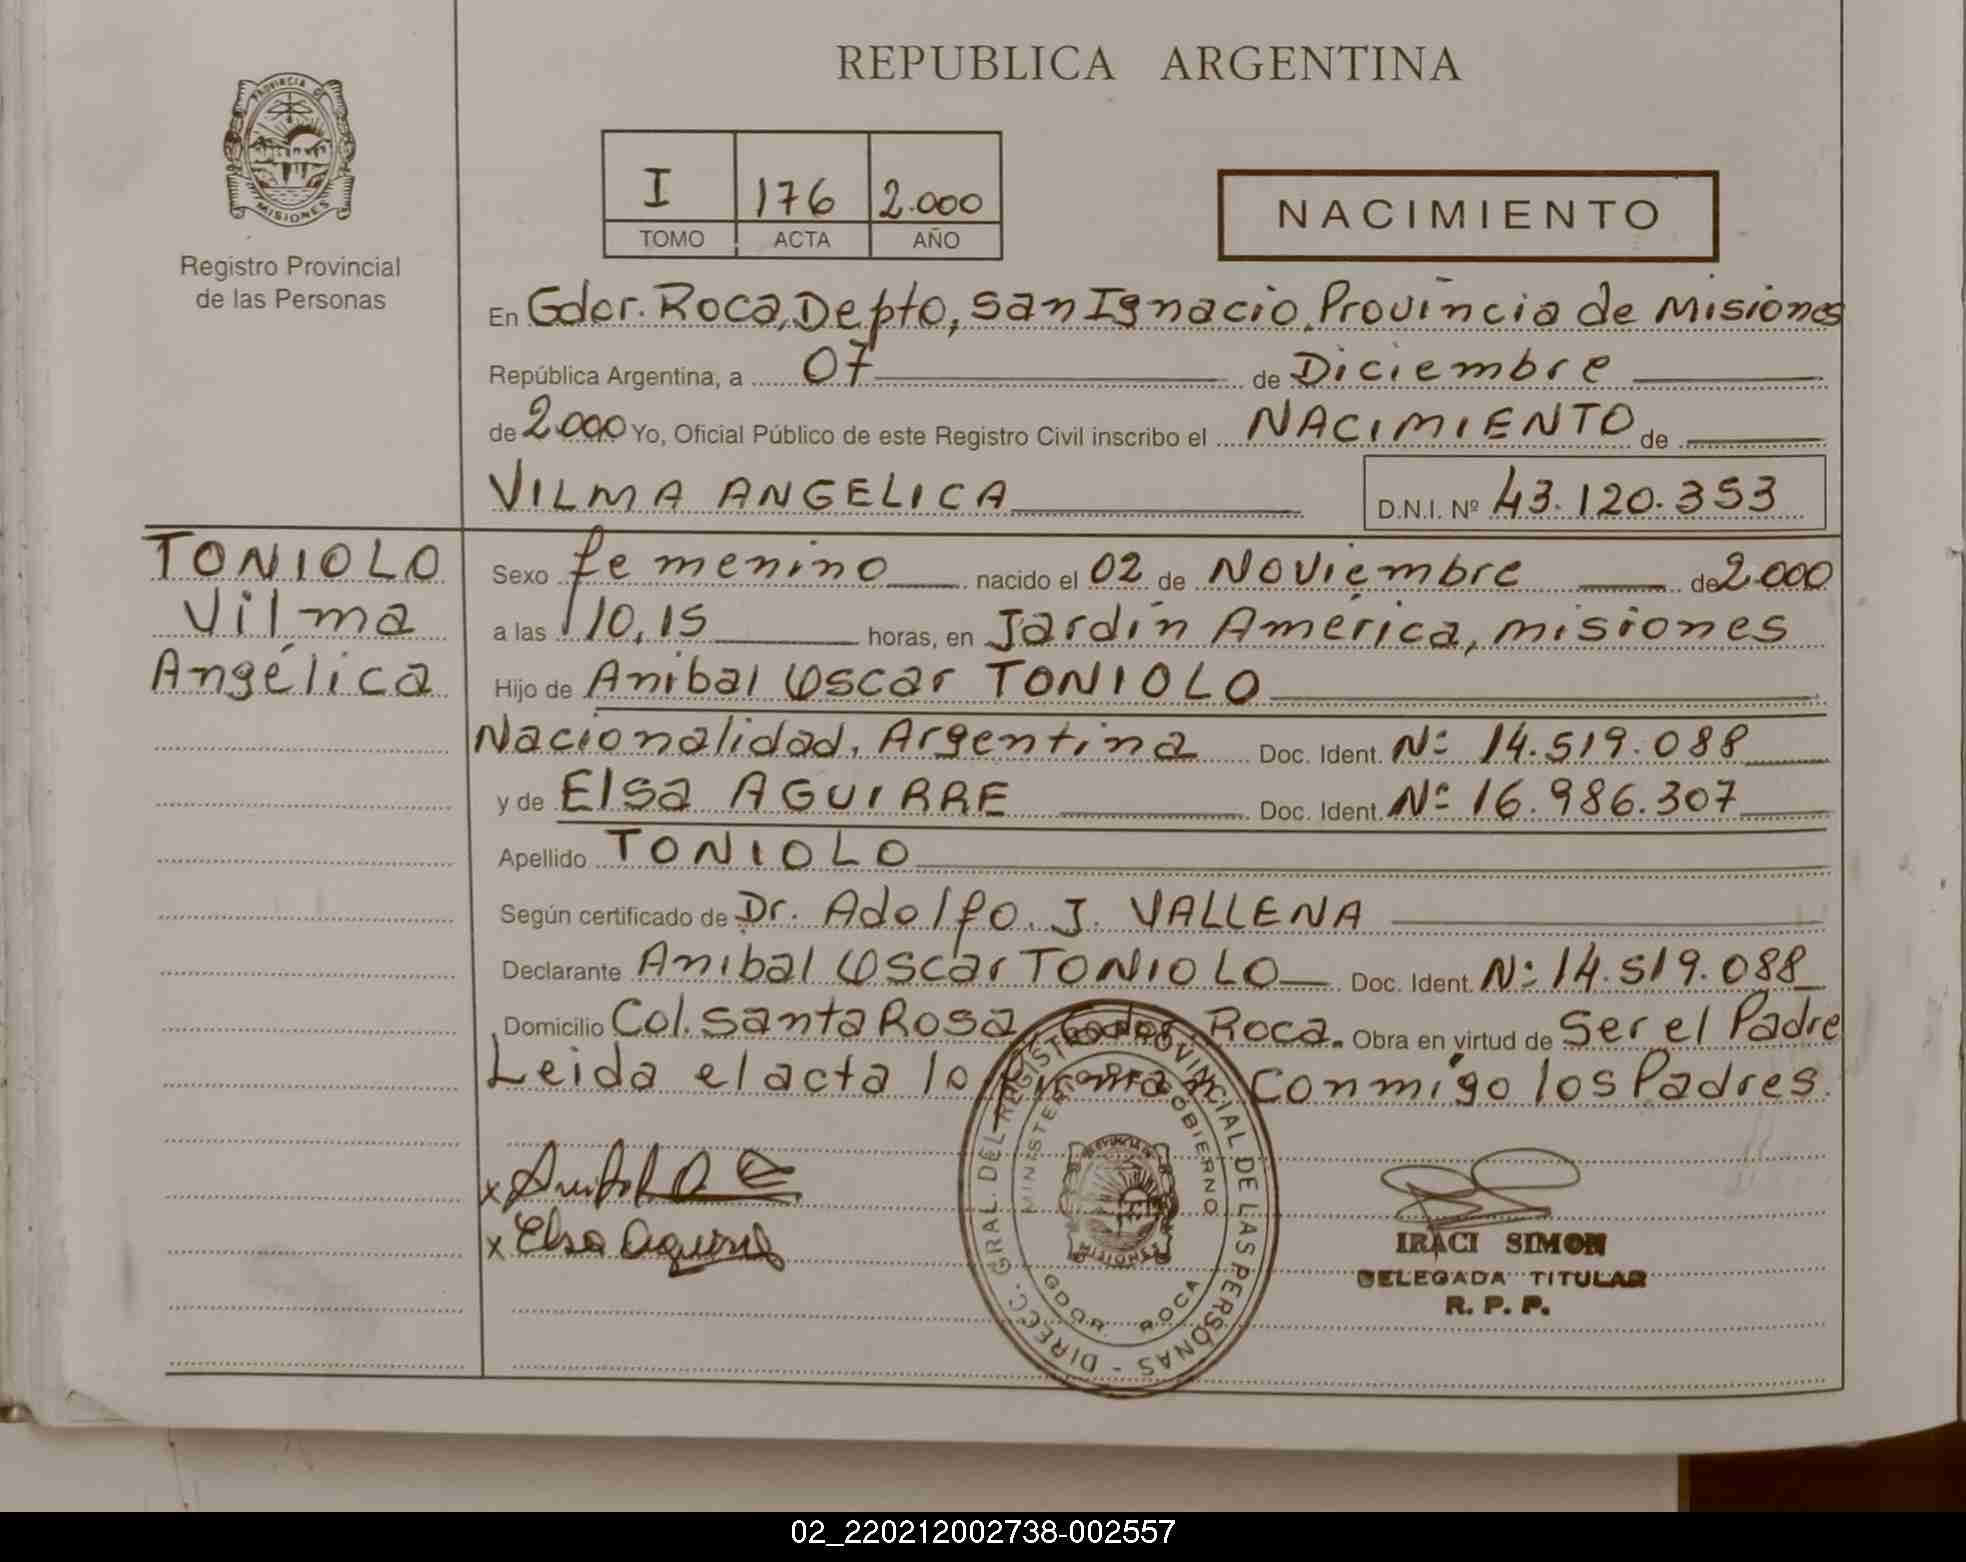 REPUBLICA ARGENTINA
PROVINCIA DE
MISIONES
Registro Provincial
de las Personas
I 176 2.000
TOMO ACTA AÑO
NACIMIENTO
En Gdor. Roca, Depto, San Ignacio, Provincia de Misiones
República Argentina, a 07 de Diciembre
de 2.000 Yo, Oficial Público de este Registro Civil inscribo el NACIMIENTO de
VILMA ANGELICA D.N.I. Nº 43.120.353
TONIOLO
Vilma
Angélica
Sexo femenino nacido el 02 de Noviembre de 2.000
a las 10,15 horas, en Jardín América, misiones
Hijo de Anibal Oscar TONIOLO
Nacionalidad. Argentina Doc. Ident. Nº 14.519.088
y de Elsa AGUIRRE Doc. Ident. Nº 16.986.307
Apellido TONIOLO
Según certificado de Dr. Adolfo. J. VALLENA
Declarante Anibal Oscar TONIOLO Doc. Ident. Nº 14.519.088
Domicilio Col. Santa Rosa, Gdor Roca. Obra en virtud de Ser el Padre
Leida el acta lo firman Conmigo los Padres.
x
x Elsa Aguirre
DIRECC. GRAL. DEL REGISTRO PROVINCIAL DE LAS PERSONAS -
MINISTERIO DE GOBIERNO
PROVINCIA DE
MISIONES
GDOR. ROCA
IRACI SIMON
DELEGADA TITULAR
R. P. P.
02_220212002738-002557